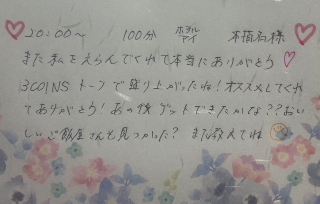 20:00〜 100分 ホテルアイ 本指名様
また私をえらんでくれて本当にありがとう
3COINSトークで盛り上がったね！オススメしてくれ
てありがとう！あの後ゲットできたかな？？おい
しいご飯屋さんも見つかった？ また教えてね